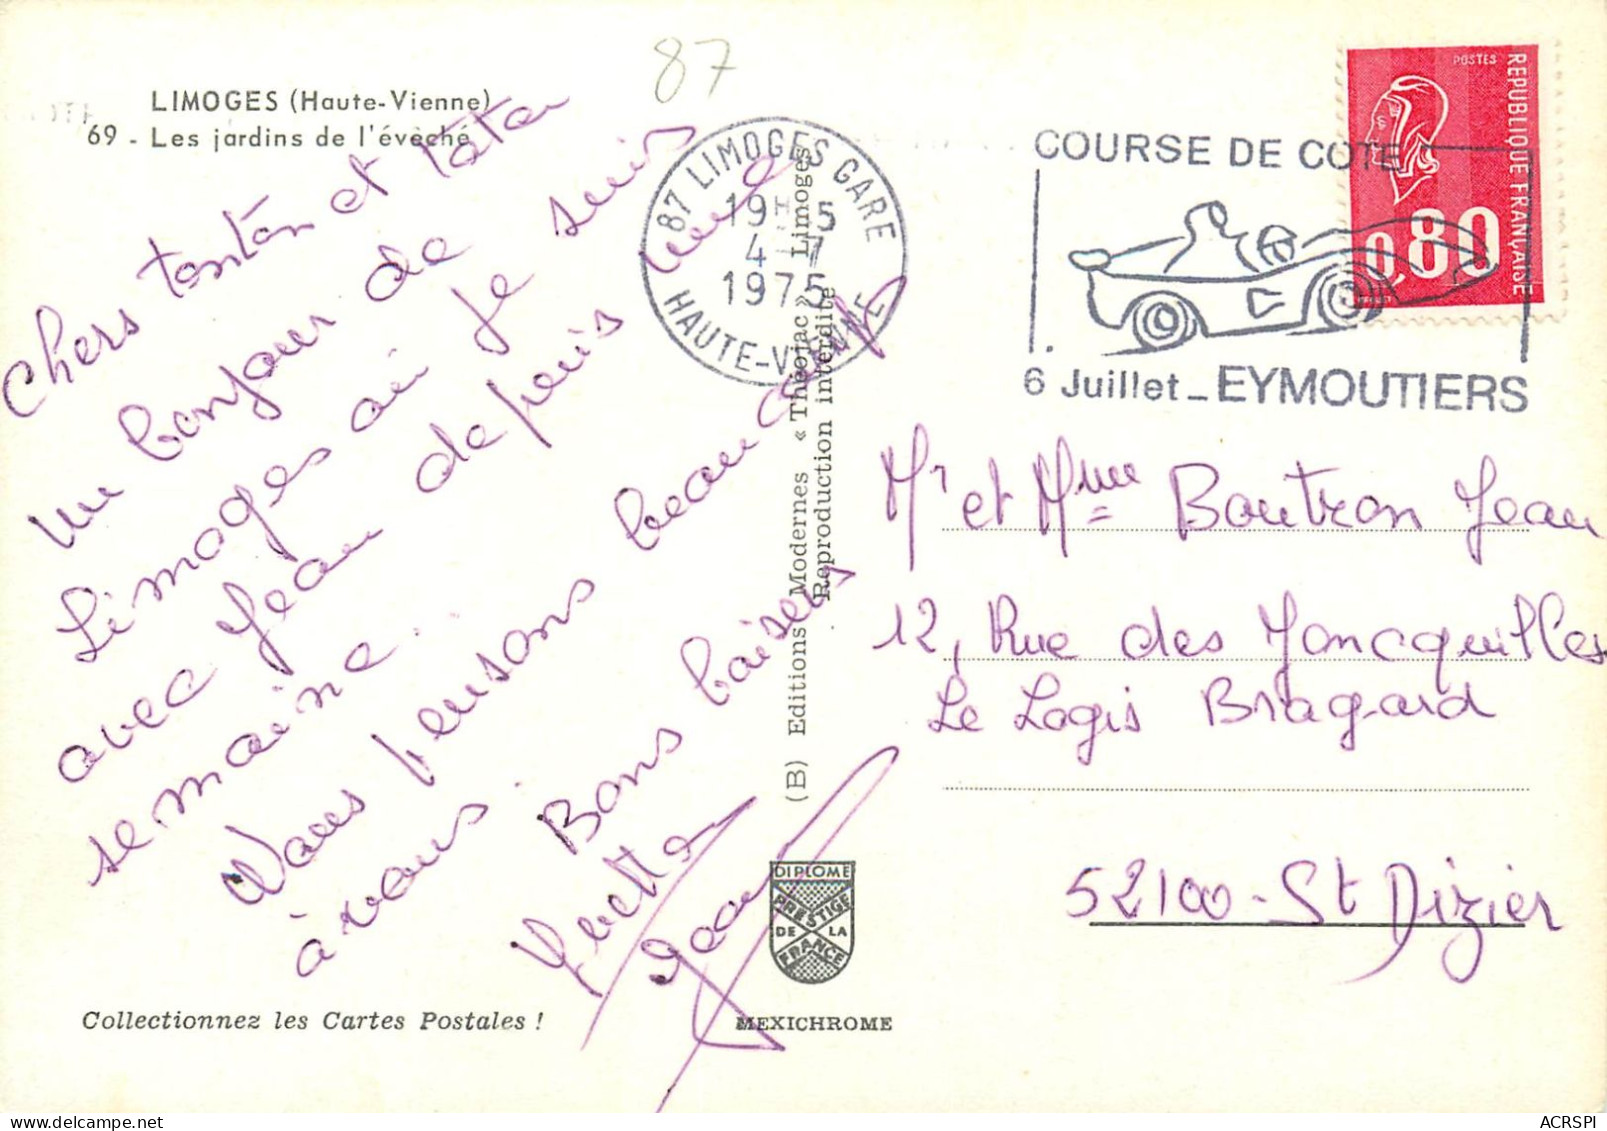 87
LIMOGES (Haute-Vienne)
69 - Les jardins de l'évêché
Chers tonton et tata
un bonjour de
Limoges ou je suis
avec Jean depuis une
semaine.
Nous pensons beaucoup
à vous.
Bons baisers
Yvette
Jean
Collectionnez les Cartes Postales !
(B) Editions Modernes « Théojac » Limoges
Reproduction interdite
DIPLOME
PRESTIGE
DE LA
FRANCE
MEXICHROME
87 LIMOGES GARE
19H 5
4-7
1975
HAUTE-VIENNE
COURSE DE COTE
6 Juillet - EYMOUTIERS
POSTES
REPUBLIQUE FRANÇAISE
0,80
Mr et Mme Boutron Jean
12, Rue des Joncquilles
Le Logis Bragard
52100 - St Dizier
ACRSPI